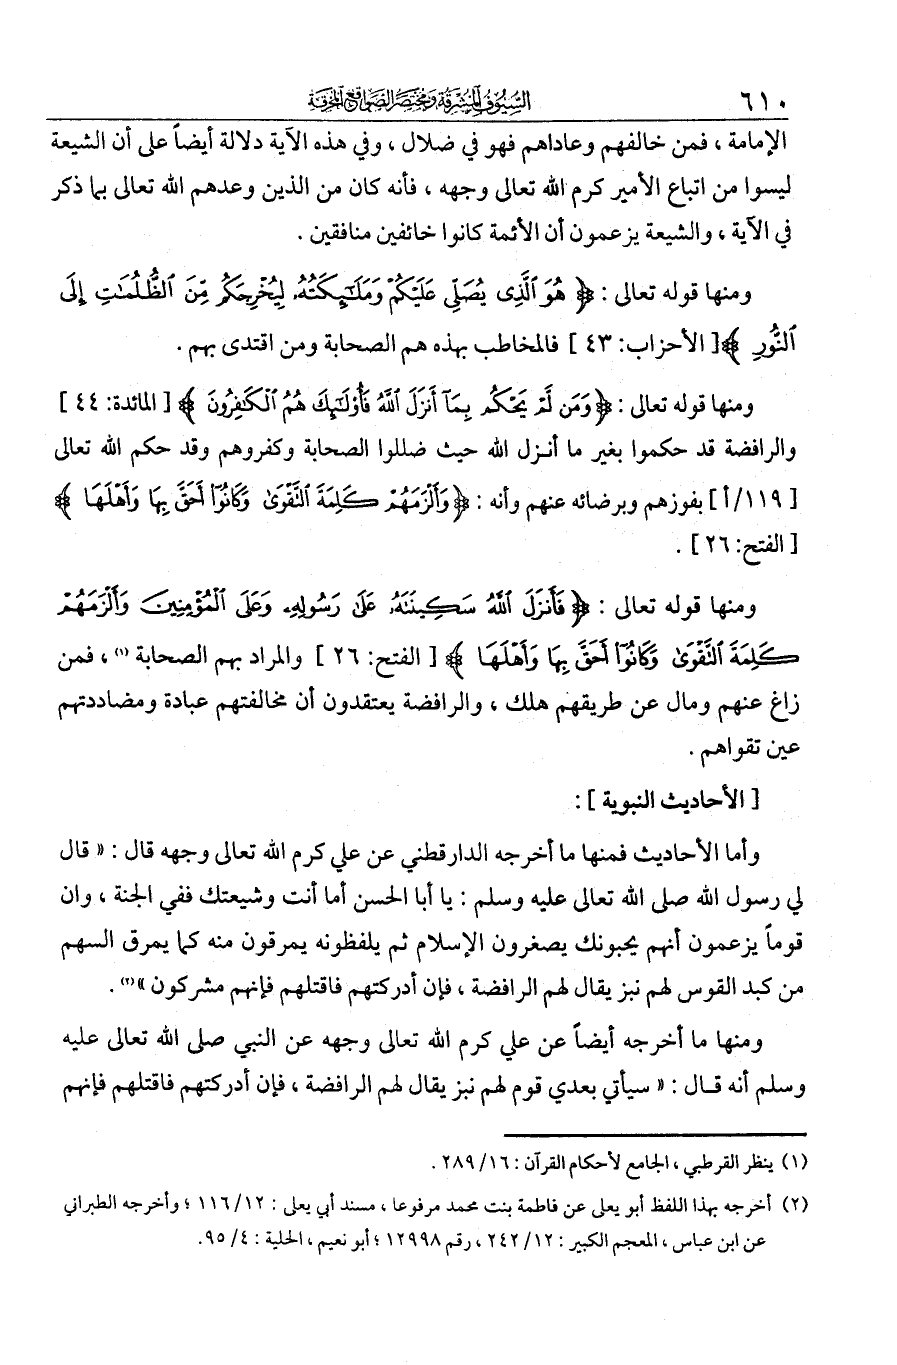 ٦١٠ السيوف المشرقة ومختصر الصواقع المحرقة
الإمامة ، فمن خالفهم وعاداهم فهو في ضلال ، وفي هذه الآية دلالة أيضاً على أن الشيعة
ليسوا من اتباع الأمير كرم الله تعالى وجهه ، فأنه كان من الذين وعدهم الله تعالى بما ذكر
في الآية ، والشيعة يزعمون أن الأئمة كانوا خائفين منافقين .
ومنها قوله تعالى : ﴿ هُوَ ٱلَّذِى يُصَلِّى عَلَيْكُمْ وَمَلَـٰٓئِكَتُهُۥ لِيُخْرِجَكُم مِّنَ ٱلظُّلُمَـٰتِ إِلَى
ٱلنُّورِ ﴾[ الأحزاب: ٤٣ ] فالمخاطب بهذه هم الصحابة ومن اقتدى بهم .
ومنها قوله تعالى : ﴿وَمَن لَّمْ يَحْكُم بِمَآ أَنزَلَ ٱللَّهُ فَأُو۟لَـٰٓئِكَ هُمُ ٱلْكَـٰفِرُونَ ﴾ [ المائدة: ٤٤ ]
والرافضة قد حكموا بغير ما أنـزل الله حيث ضللوا الصحابة وكفروهم وقد حكم الله تعالى
[ ١١٩/أ ] بفوزهم وبرضائه عنهم وأنه : ﴿ وَأَلْزَمَهُمْ كَلِمَةَ ٱلتَّقْوَىٰ وَكَانُوٓا۟ أَحَقَّ بِهَا وَأَهْلَهَا ﴾
[ الفتح: ٢٦ ] .
ومنها قوله تعالى : ﴿ فَأَنزَلَ ٱللَّهُ سَكِينَتَهُۥ عَلَىٰ رَسُولِهِۦ وَعَلَى ٱلْمُؤْمِنِينَ وَأَلْزَمَهُمْ
كَلِمَةَ ٱلتَّقْوَىٰ وَكَانُوٓا۟ أَحَقَّ بِهَا وَأَهْلَهَا ﴾ [ الفتح: ٢٦ ] والمراد بهم الصحابة (١) ، فمن
زاغ عنهم ومال عن طريقهم هلك ، والرافضة يعتقدون أن مخالفتهم عبادة ومضاددتهم
عين تقواهم .
[ الأحاديث النبوية ] :
وأما الأحاديث فمنها ما أخرجه الدارقطني عن علي كرم الله تعالى وجهه قال : « قال
لي رسول الله صلى الله تعالى عليه وسلم : يا أبا الحسن أما أنت وشيعتك ففي الجنة ، وان
قوماً يزعمون أنهم يحبونك يصغرون الإسلام ثم يلفظونه يمرقون منه كما يمرق السهم
من كبد القوس لهم نبز يقال لهم الرافضة ، فإن أدركتهم فاقتلهم فإنهم مشركون »(٢) .
ومنها ما أخرجه أيضاً عن علي كرم الله تعالى وجهه عن النبي صلى الله تعالى عليه
وسلم أنه قـال : « سيأتي بعدي قوم لهم نبز يقال لهم الرافضة ، فإن أدركتهم فاقتلهم فإنهم
(١) ينظر القرطبي ، الجامع لأحكام القرآن : ١٦/ ٢٨٩ .
(٢) أخرجه بهذا اللفظ أبو يعلى عن فاطمة بنت محمد مرفوعا ، مسند أبي يعلى : ١٢/ ١١٦ ؛ وأخرجه الطبراني
عن ابن عباس ، المعجم الكبير : ١٢/ ٢٤٢ ، رقم ١٢٩٩٨ ؛ أبو نعيم ، الحلية : ٤/ ٩٥.